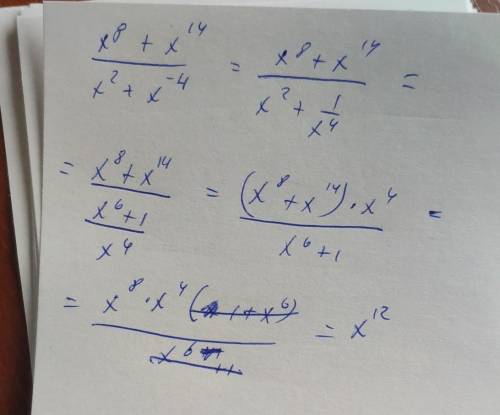 (x^8 + x^14)/(x^2 + x^-4) = (x^8 + x^14)/(x^2 + 1/x^4) =
= (x^8 + x^14)/((x^6 + 1)/x^4) = ((x^8 + x^14) · x^4)/(x^6 + 1) =
= (x^8 · x^4 (1 + x^6))/(x^6 + 1) = x^12